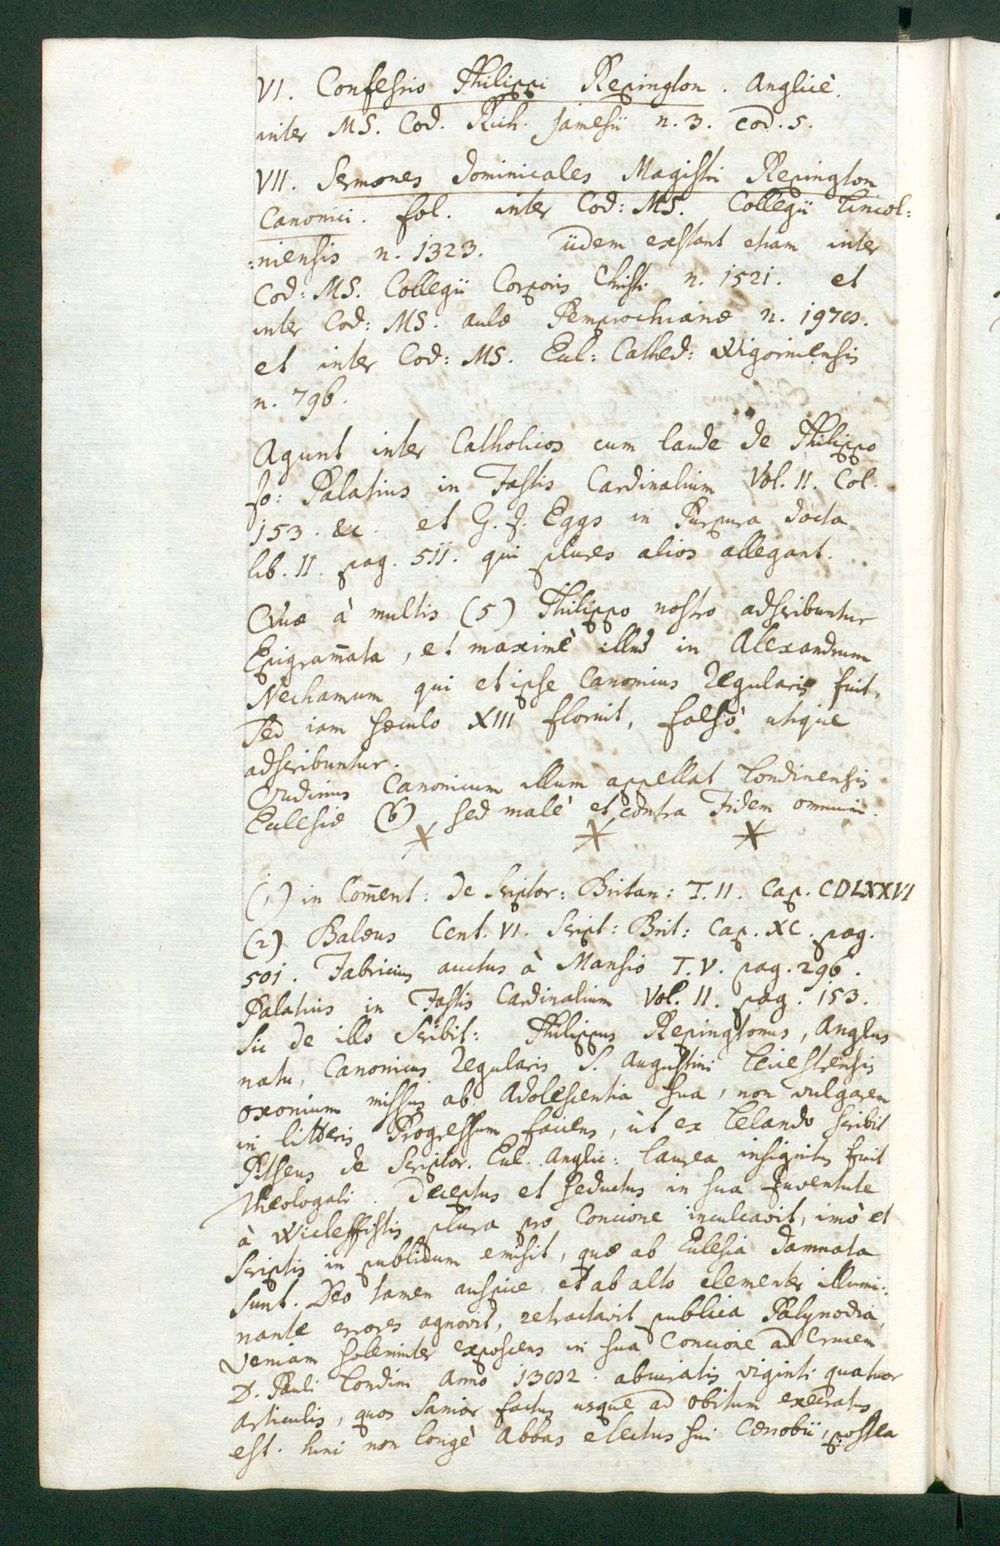 VI. Confessio Philippi Repington. Anglicè.
inter MS. Cod. Rich. Jamesii n. 3. cod. 5.
VII. Sermones Dominicales Magistri Repington
Canonici. fol. inter Cod: MS. Collegii Lincol:
:niensis n. 1323. iidem exstant etiam inter
Cod: MS. Collegii Corporis Christi n. 1521. et
inter Cod: MS. aulæ Pembrochianæ n. 1978.
et inter Cod: MS. Eccl: Cathed: Wigorniensis
n. 796.
Agunt inter Catholicos cum laude de Philippo
Jo: Palatius in Fastis Cardinalium Vol. II. Col.
153. &c. et G. J. Eggs in Purpura docta
lib. II. pag. 511. qui plures alios allegant.
Quæ à multis (5) Philippo nostro adscribuntur
Epigram̄ata, et maximè illud in Alexandrum
Nechamum qui et ipse Canonicus Regularis fuit,
sed iam sæculo XIII floruit, falsò utique
adscribuntur.
Oudinus Canonicum illum appellat Londinensis
Ecclesiæ (6) sed malè et contra Fidem omnium.
(1) in Com̄ent: de Scriptor: Britan: T. II. Cap. CDLXXVI
(2) Baleus Cent. VI. Script: Brit: Cap. XC. pag.
501. Fabricius auctus à Mansio T. V. pag. 296.
Palatius in Fastis Cardinalium Vol. II. pag. 153.
sic de illo scribit: Philippus Repingtonus, Anglus
natu, Canonicus Regularis S. Augustini Leicestrensis
Oxonium missus ab Adolescentia sua, non vulgarem
in litteris Progressum faciens, ut ex Lelando scribit
Pitseus de Scriptor. Eccl. Anglic: laurea insignitus fuit
Theologali. Deceptus et seductus in sua Juventute
à Wicleffistis plura pro Concione inculcavit, imò et
scriptis in publicum emisit, quæ ab Ecclesia damnata
sunt. Deo tamen auspice, et ab alto clementer illumi:
nante errores agnovit, retractavit publica Palynodia,
veniam solemniter exposcens in sua Concione ad Crucem
D. Pauli Londini anno 1382. abiuratis viginti quatuor
articulis, quos sanior factus usque ad obitum execratus
est. hinc non longè Abbas electus sui Cœnobii, postea